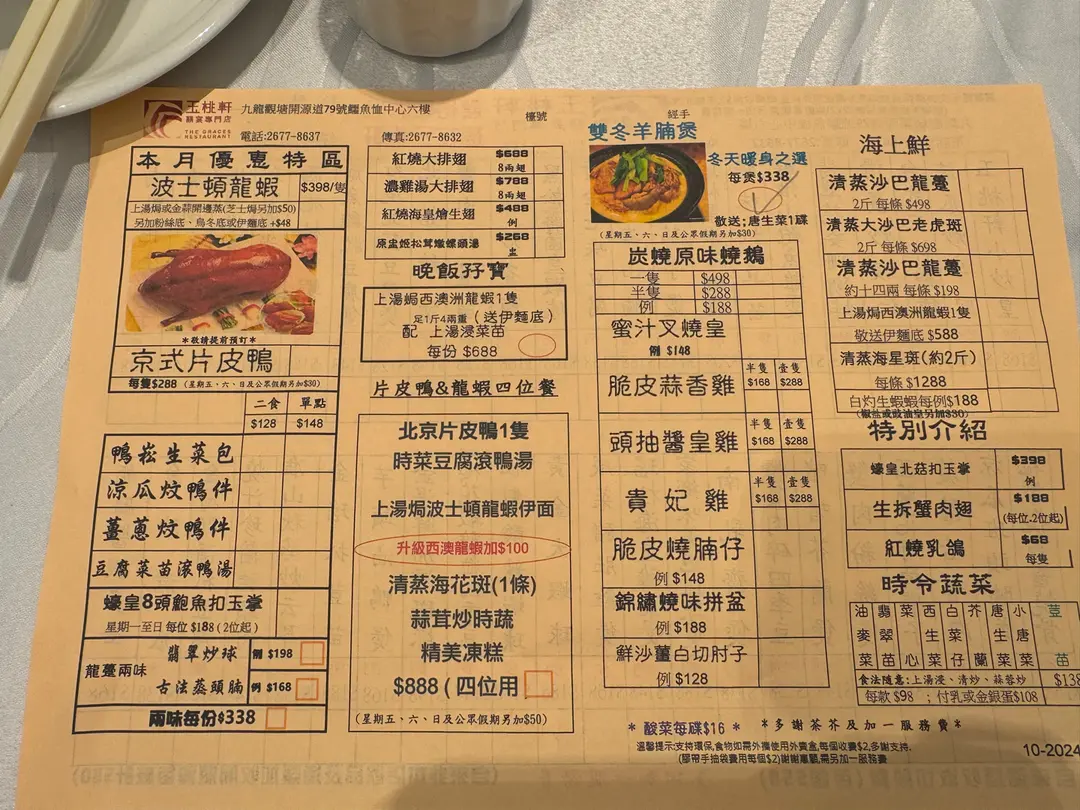 玉桃軒
囍宴專門店
THE GRACES
RESTAURANT
九龍觀塘開源道79號鱷魚恤中心六樓
電話:2677-8637
傳真:2677-8632
檯號
經手
本月優惠特區
波士頓龍蝦 $398/隻
上湯焗或金蒜開邊蒸(芝士焗另加$50)
另加粉絲底、烏冬底或伊麵底 +$48
*敬請提前預訂*
京式片皮鴨
每隻$288 (星期五、六、日及公眾假期另加$30)
二食 單點
$128 $148
鴨崧生菜包
涼瓜炆鴨件
薑蔥炆鴨件
豆腐菜苗滾鴨湯
蠔皇8頭鮑魚扣玉掌
星期一至日 每位 $188 (2位起)
龍躉兩味
翡翠炒球 例 $198
古法蒸頭腩 例 $168
兩味每份$338
紅燒大排翅 $688 8兩翅
濃雞湯大排翅 $788 8兩翅
紅燒海皇燴生翅 $488 例
原盅姬松茸燉螺頭湯 $268 盅
晚飯孖寶
上湯焗西澳洲龍蝦1隻
足1斤4兩重 (送伊麵底)
配 上湯浸菜苗
每份 $688
片皮鴨&龍蝦四位餐
北京片皮鴨1隻
時菜豆腐滾鴨湯
上湯焗波士頓龍蝦伊面
升級西澳龍蝦加$100
清蒸海花斑(1條)
蒜茸炒時蔬
精美凍糕
$888 ( 四位用
(星期五、六、日及公眾假期另加$50)
雙冬羊腩煲
冬天暖身之選
每煲$338
敬送:唐生菜1碟
(星期五、六、日及公眾假期另加$30)
炭燒原味燒鵝
一隻 $498
半隻 $288
例 $188
蜜汁叉燒皇
例 $148
脆皮蒜香雞 半隻 $168 壹隻 $288
頭抽醬皇雞 半隻 $168 壹隻 $288
貴妃雞 半隻 $168 壹隻 $288
脆皮燒腩仔
例 $148
錦繡燒味拼盆
例 $188
鮮沙薑白切肘子
例 $128
海上鮮
清蒸沙巴龍躉
2斤 每條 $498
清蒸大沙巴老虎斑
2斤 每條 $698
清蒸沙巴龍躉
約十四兩 每條 $198
上湯焗西澳洲龍蝦1隻
敬送伊麵底 $588
清蒸海星斑(約2斤)
每條 $1288
白灼生蝦蝦每例$188
(椒鹽或豉油皇另加$30)
特別介紹
蠔皇北菇扣玉掌 $398 例
生拆蟹肉翅 $188 (每位-2位起)
紅燒乳鴿 $68 每隻
時令蔬菜
油麥菜 翡翠苗 菜心 西生菜 白菜仔 芥蘭 唐生菜 小唐菜 荳苗
食法隨意:上湯浸、清炒、蒜蓉炒 $138
每款 $98 ; 付乳或金銀蛋$108
* 酸菜每碟$16 * *多謝茶芥及加一服務費*
溫馨提示:支持環保,食物如需外攜使用外賣盒,每個收費$2,多謝支持.
(膠帶手抽袋費用每個$2)謝謝惠顧,需另加一服務費
10-2024